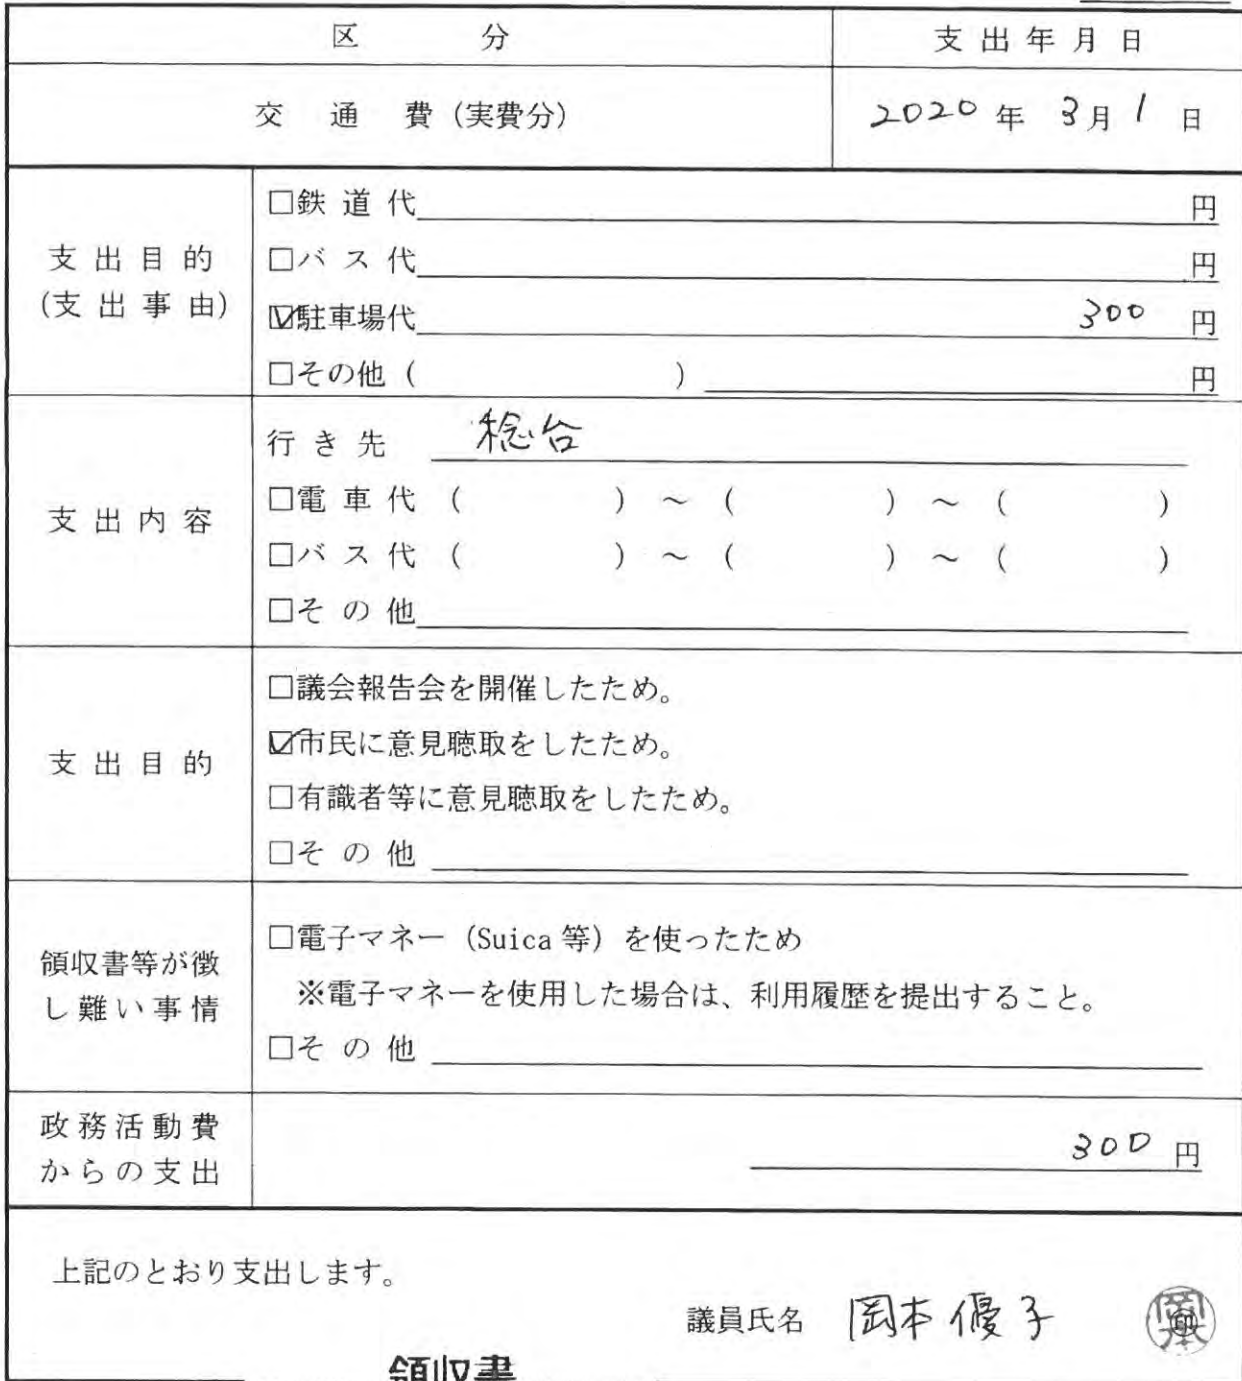 区 分 支出年月日
交 通 費 (実費分) 2020 年 3月 1 日
支出目的
(支出事由)
□鉄 道 代 円
□バ ス 代 円
☑駐車場代 300 円
□その他 ( ) 円
支出内容
行 き 先 稔台
□電 車 代 ( ) ~ ( ) ~ ( )
□バ ス 代 ( ) ~ ( ) ~ ( )
□そ の 他
支出目的
□議会報告会を開催したため。
☑市民に意見聴取をしたため。
□有識者等に意見聴取をしたため。
□そ の 他
領収書等が徴
し難い事情
□電子マネー (Suica 等) を使ったため
※電子マネーを使用した場合は、利用履歴を提出すること。
□そ の 他
政務活動費
からの支出
300 円
上記のとおり支出します。
議員氏名 岡本優子 岡本 ㊞
領収書